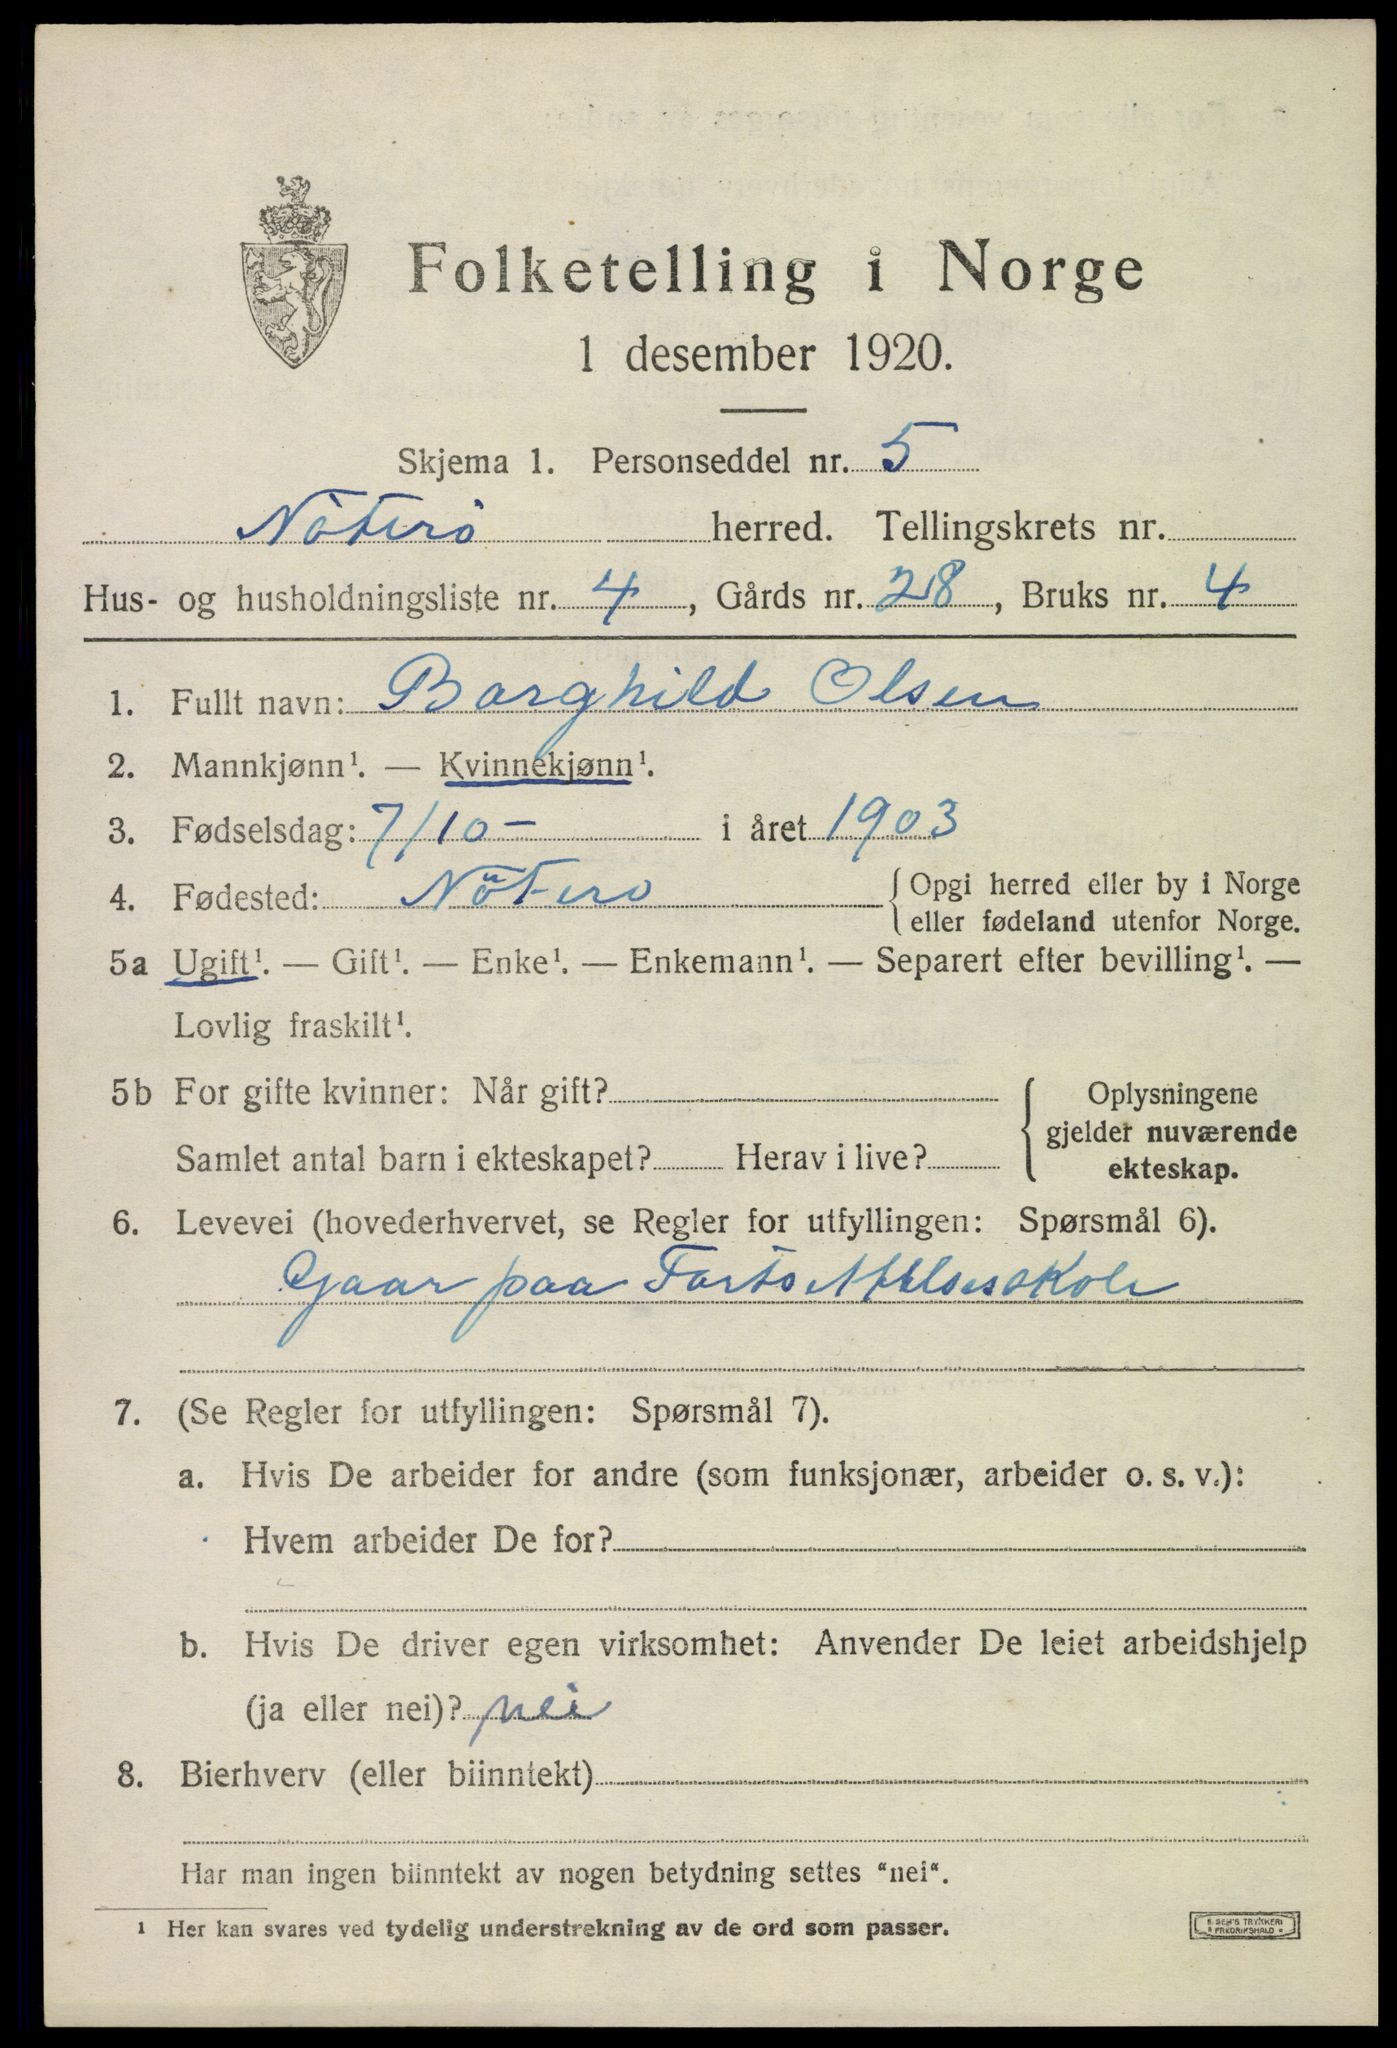 Folketelling i Norge
1 desember 1920.
Skjema 1. Personseddel nr. 5
Nöterö herred. Tellingskrets nr.
Hus- og husholdningsliste nr. 4, Gårds nr. 28, Bruks nr. 4
1. Fullt navn: Borghild Olsen
2. Mannkjønn¹. — Kvinnekjønn¹.
3. Fødselsdag: 7/10- i året 1903
4. Fødested: Nötero
{ Opgi herred eller by i Norge
eller fødeland utenfor Norge.
5a Ugift¹. — Gift¹. — Enke¹. — Enkemann¹. — Separert efter bevilling¹. —
Lovlig fraskilt¹.
5b For gifte kvinner: Når gift?
Samlet antal barn i ekteskapet? Herav i live?
{ Oplysningene
gjelder nuværende
ekteskap.
6. Levevei (hovederhvervet, se Regler for utfyllingen: Spørsmål 6).
Gaar paa Fortsættelsesskole
7. (Se Regler for utfyllingen: Spørsmål 7).
a. Hvis De arbeider for andre (som funksjonær, arbeider o. s. v.):
Hvem arbeider De for?
b. Hvis De driver egen virksomhet: Anvender De leiet arbeidshjelp
(ja eller nei)? nei
8. Bierhverv (eller biinntekt)
Har man ingen biinntekt av nogen betydning settes "nei".
¹ Her kan svares ved tydelig understrekning av de ord som passer.
TRYKKERI
FREDRIKSHALD